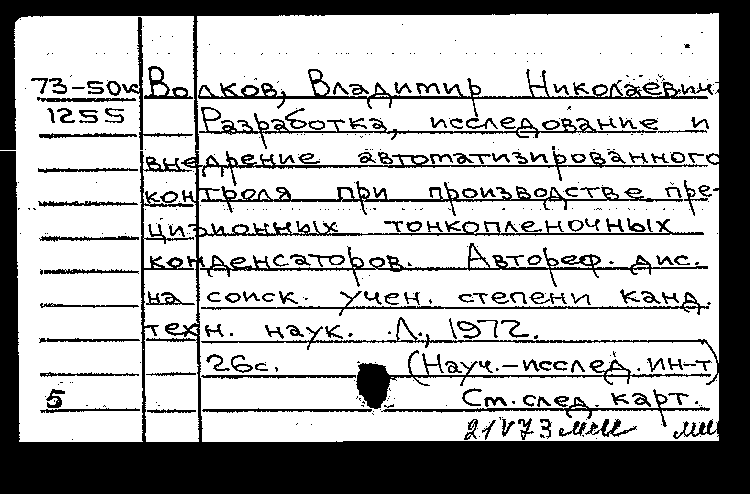 73-50к Волков, Владимир Николаевич.
1255 Разработка, исследование и
внедрение автоматизированного
контроля при производстве пре-
цизионных тонкопленочных
конденсаторов. Автореф. дис.
на соиск. учен. степени канд.
техн. наук. Л., 1972.
26с. (Науч.-исслед. ин-т)
5 Ст. след. карт.
21 V 73